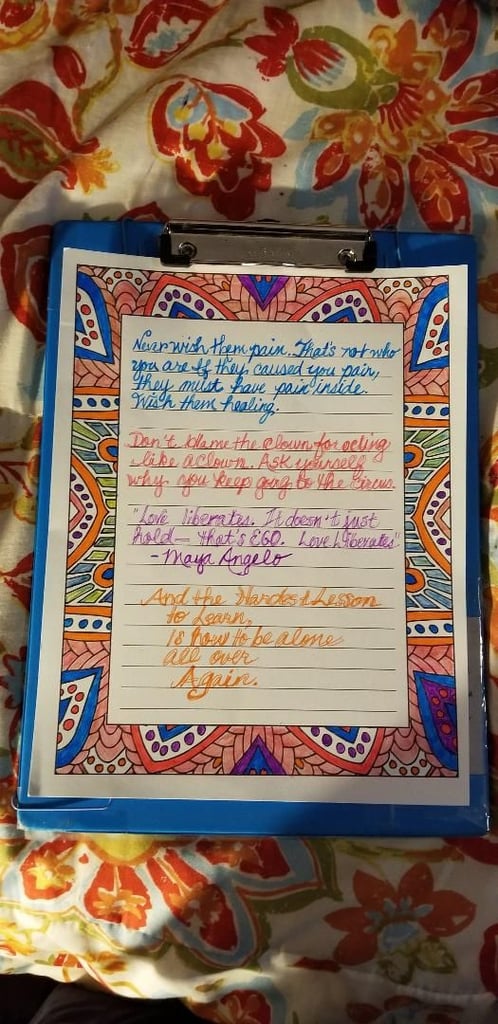 Never wish them pain. That's not who
you are. If they caused you pain,
they must have pain inside.
Wish them healing.
Don't blame the clown for acting
like a clown. Ask yourself
why you keep going to the circus.
"Love liberates. It doesn't just
hold— that's EGO. Love Liberates"
- Maya Angelo
And the Hardest Lesson
to Learn,
Is how to be alone
all over
Again.